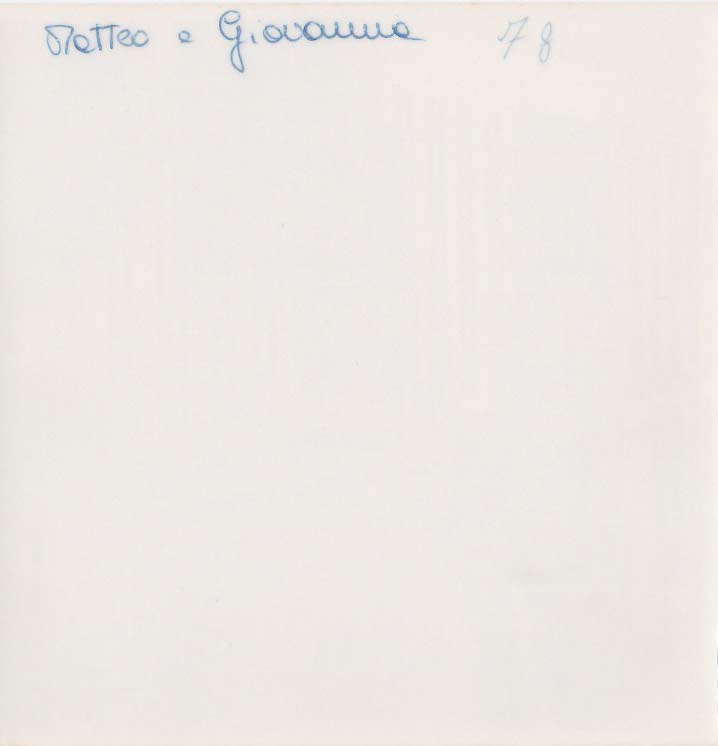 Matteo e Giovanna 78